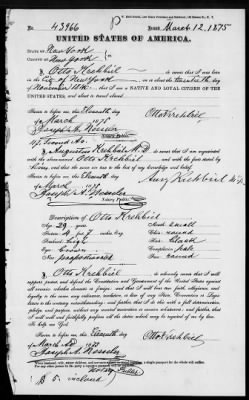 43966
March 12, 1875
UNITED STATES OF AMERICA.
STATE OF New York
COUNTY OF New York
I, Otto Krehbiel do swear that I was born
in the City of New York on or about the day
of November that I am a NATIVE AND LOYAL CITIZEN OF THE
UNITED STATES, and about to travel abroad.
Sworn to before me, this Eleventh day
of March 1875
Otto Krehbiel
Joseph A.
Notary Public.
I, Augustus Krehbiel M.D. do swear that I am acquainted
with the above-named Otto Krehbiel and with the facts stated by
him, and that the same are true to the best of my knowledge and belief.
Sworn to before me, this Eleventh day
of March 1875
Joseph A.
Notary Public.
Description of Otto Krehbiel
Age, 29 years
Mouth, small
Stature, feet 7 inches, Eng.
Chin, round
Forehead, high
Hair, black
Eyes, brown
Complexion,
Nose, proportioned
Face, round
I, Otto Krehbiel do solemnly swear that I will
support, protect, and defend the Constitution and Government of the United States against
all enemies, whether domestic or foreign; and that I will bear true faith, allegiance, and
loyalty to the same, any ordinance, resolution, or law of any State, Convention, or Legis-
lature to the contrary notwithstanding; and further, that I do this with a full determination,
pledge, and purpose, without any mental reservation or evasion whatsoever; and further, that
I will well and faithfully perform all the duties which may be required of me by law:
So help me God.
Sworn to before me, this Eleventh day
of March 1875
Otto Krehbiel
Joseph A.
Notary Public
$ 5. inclosed